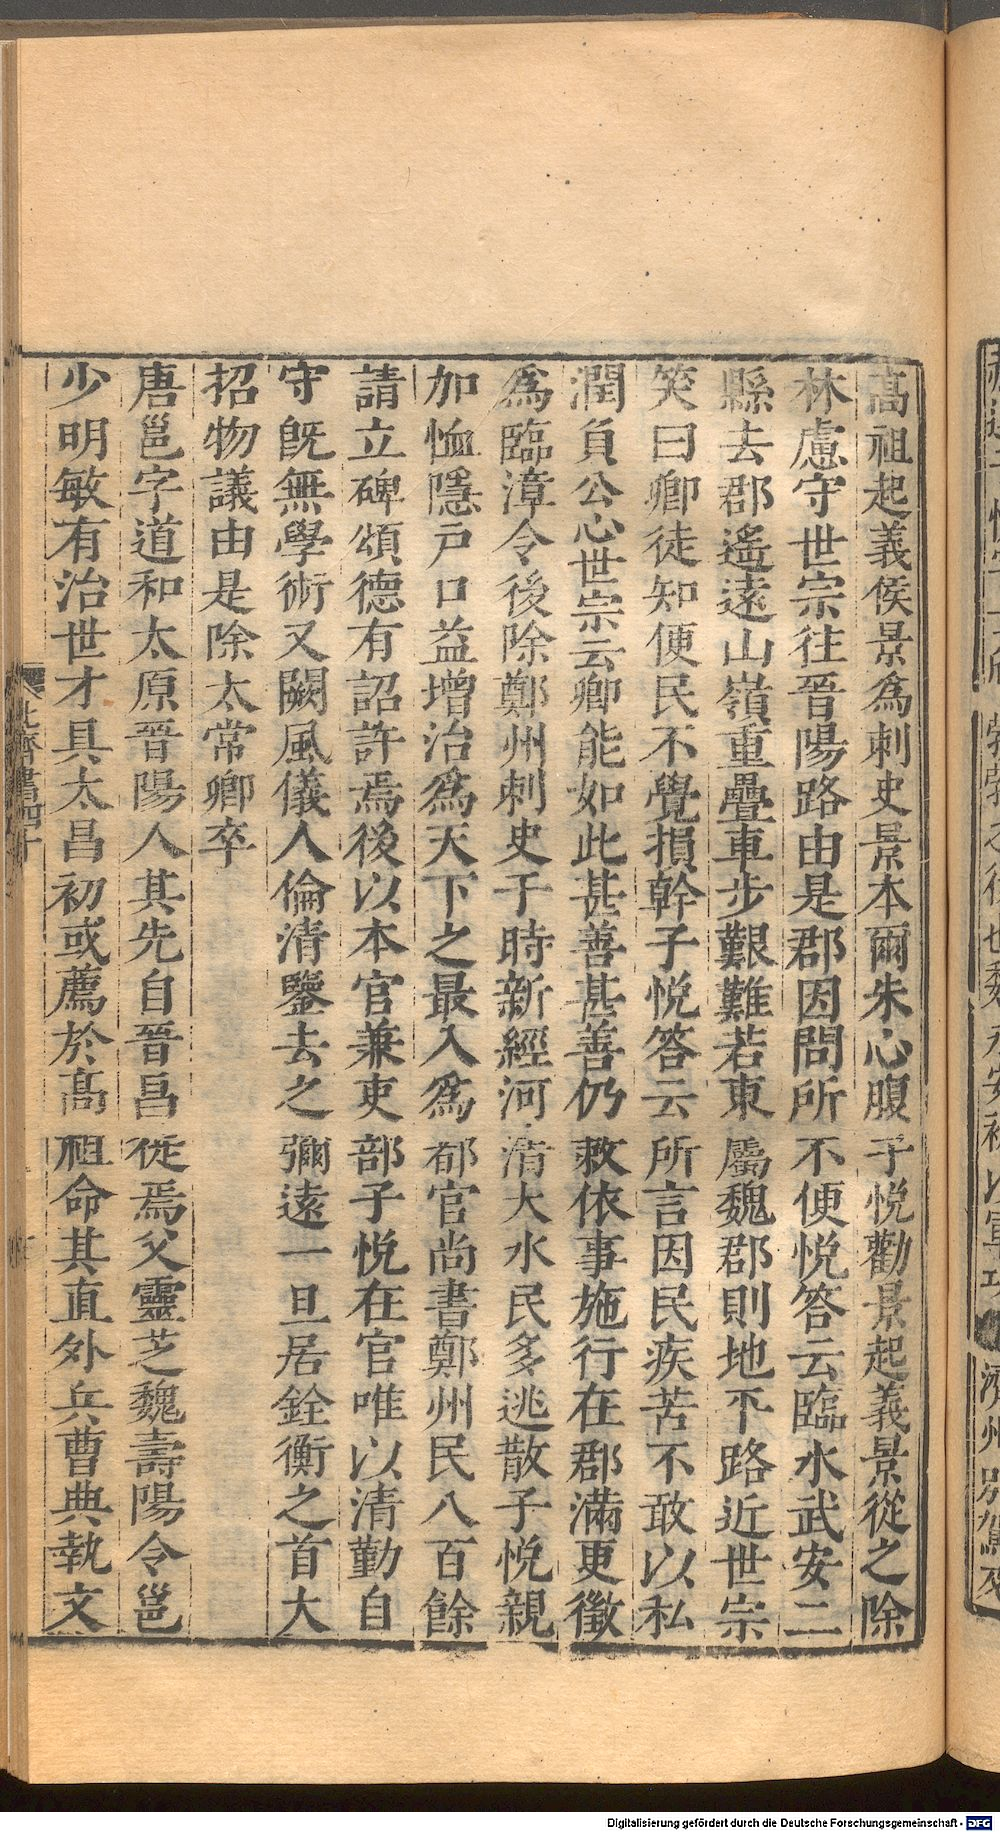 高祖起義侯景爲刺史景本爾朱心腹子悅勸景起義景從之除
林慮守世宗往晉陽路由是郡因問所不便悅答云臨水武安二
縣去郡遙遠山嶺重疊車步艱難若東屬魏郡則地平路近世宗
笑曰卿徒知便民不覺損幹子悅答云所言因民疾苦不敢以私
潤負公心世宗云卿能如此甚善甚善仍敕依事施行在郡滿更徵
爲臨漳令後除鄭州刺史于時新經河清大水民多逃散子悅親
加恤隱戶口益增治爲天下之最入爲都官尚書鄭州民八百餘
請立碑頌德有詔許焉後以本官兼吏部子悅在官唯以清勤自
守旣無學術又闕風儀人倫清鑒去之彌遠一旦居銓衡之首大
招物議由是除太常卿卒
唐邕字道和太原晉陽人其先自晉昌徙焉父靈芝魏壽陽令邕
少明敏有治世才具太昌初或薦於高祖命其直外兵曹典執文
北齊書四十
Digitalisierung gefördert durch die Deutsche Forschungsgemeinschaft - DFG